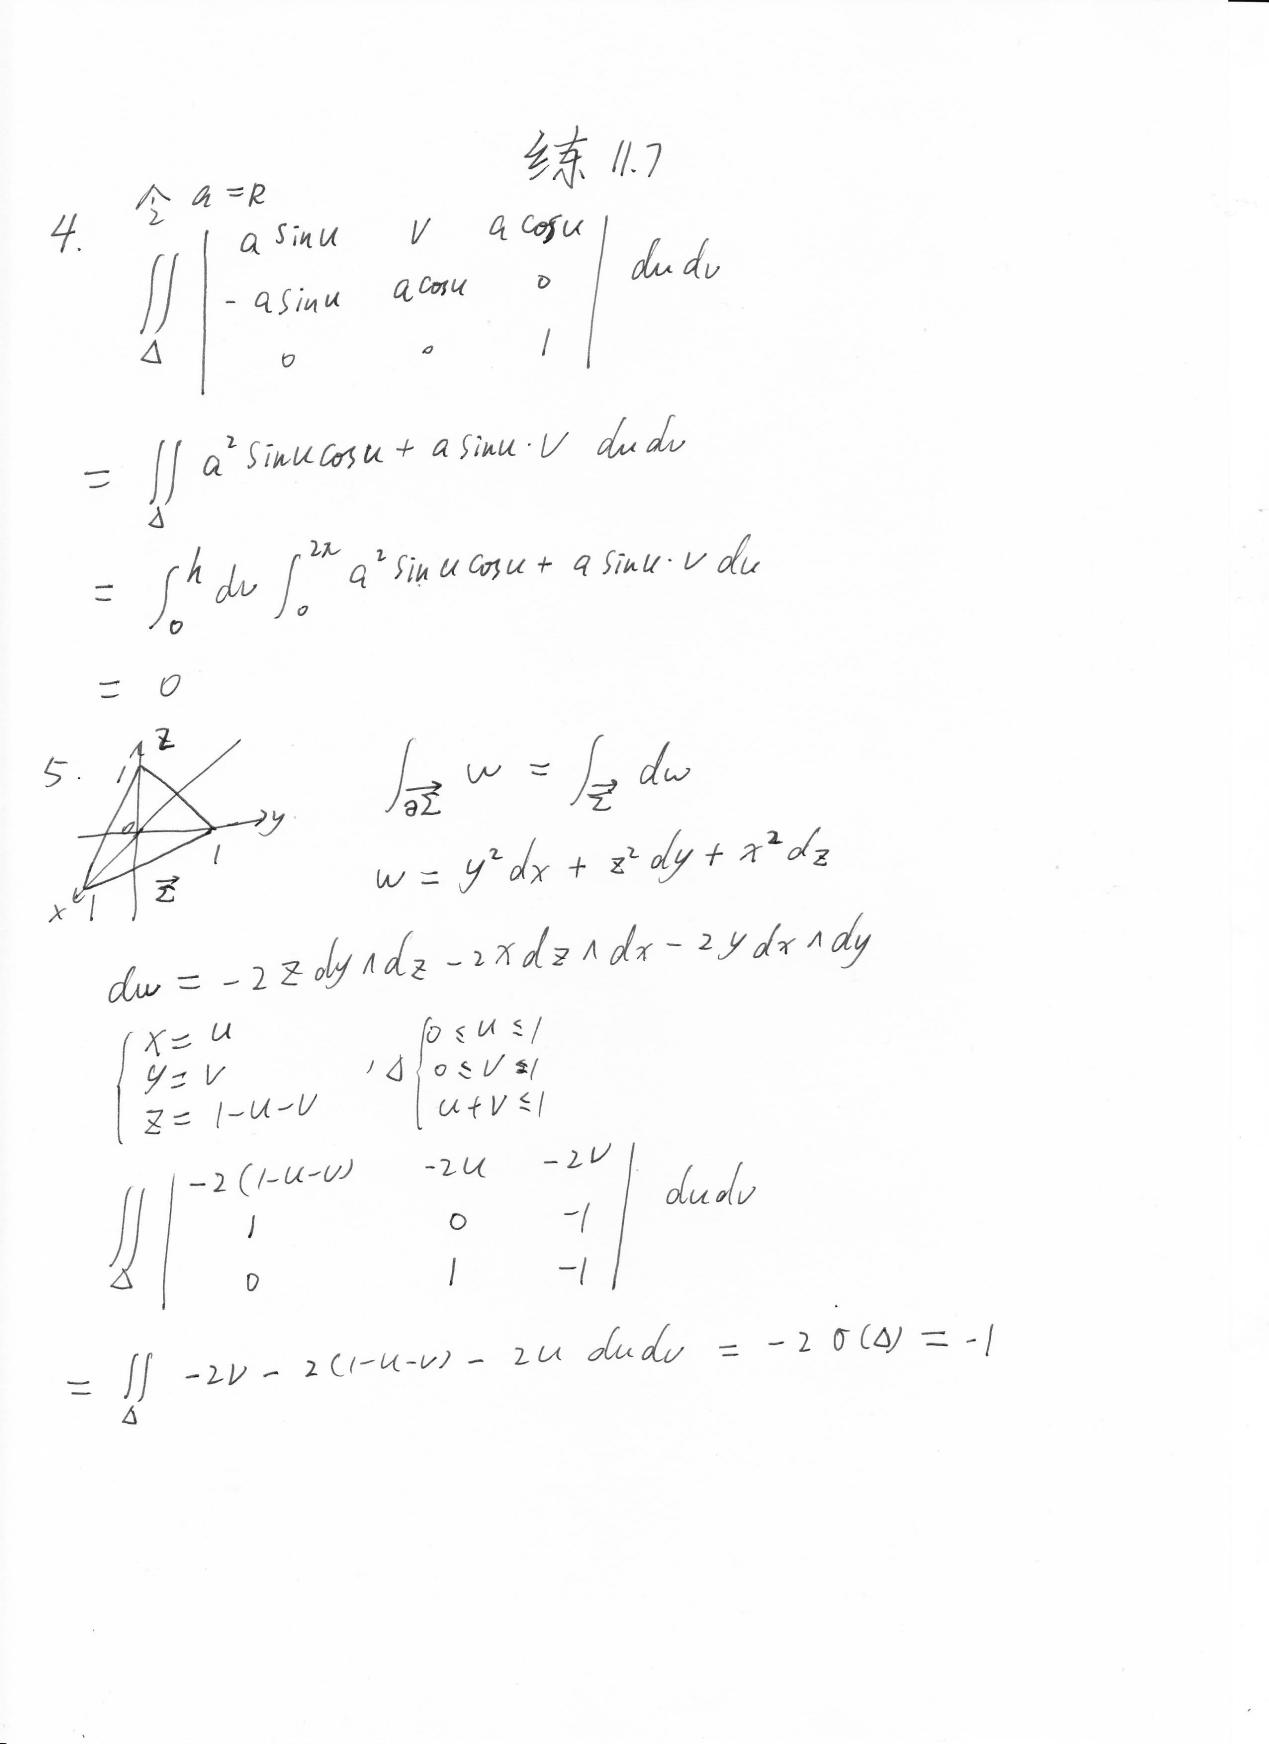 练 11.7
令 a = R
4. ∬_Δ | a sinu  v  a cosu ; -a sinu  a cosu  0 ; 0  0  1 | dudv
= ∬_Δ a² sinu cosu + a sinu · v dudv
= ∫_0^h dv ∫_0^{2π} a² sinu cosu + a sinu · v du
= 0
5. z 1 o y 1 x 1 Σ⃗ ∫_{∂Σ⃗} w = ∫_{Σ⃗} dw
w = y²dx + z²dy + x²dz
dw = -2zdy∧dz - 2xdz∧dx - 2ydx∧dy
{ x = u ; y = v ; z = 1-u-v , Δ { 0≤u≤1 ; 0≤v≤1 ; u+v≤1
∬_Δ | -2(1-u-v)  -2u  -2v ; 1  0  -1 ; 0  1  -1 | dudv
= ∬_Δ -2v - 2(1-u-v) - 2u dudv = -2σ(Δ) = -1